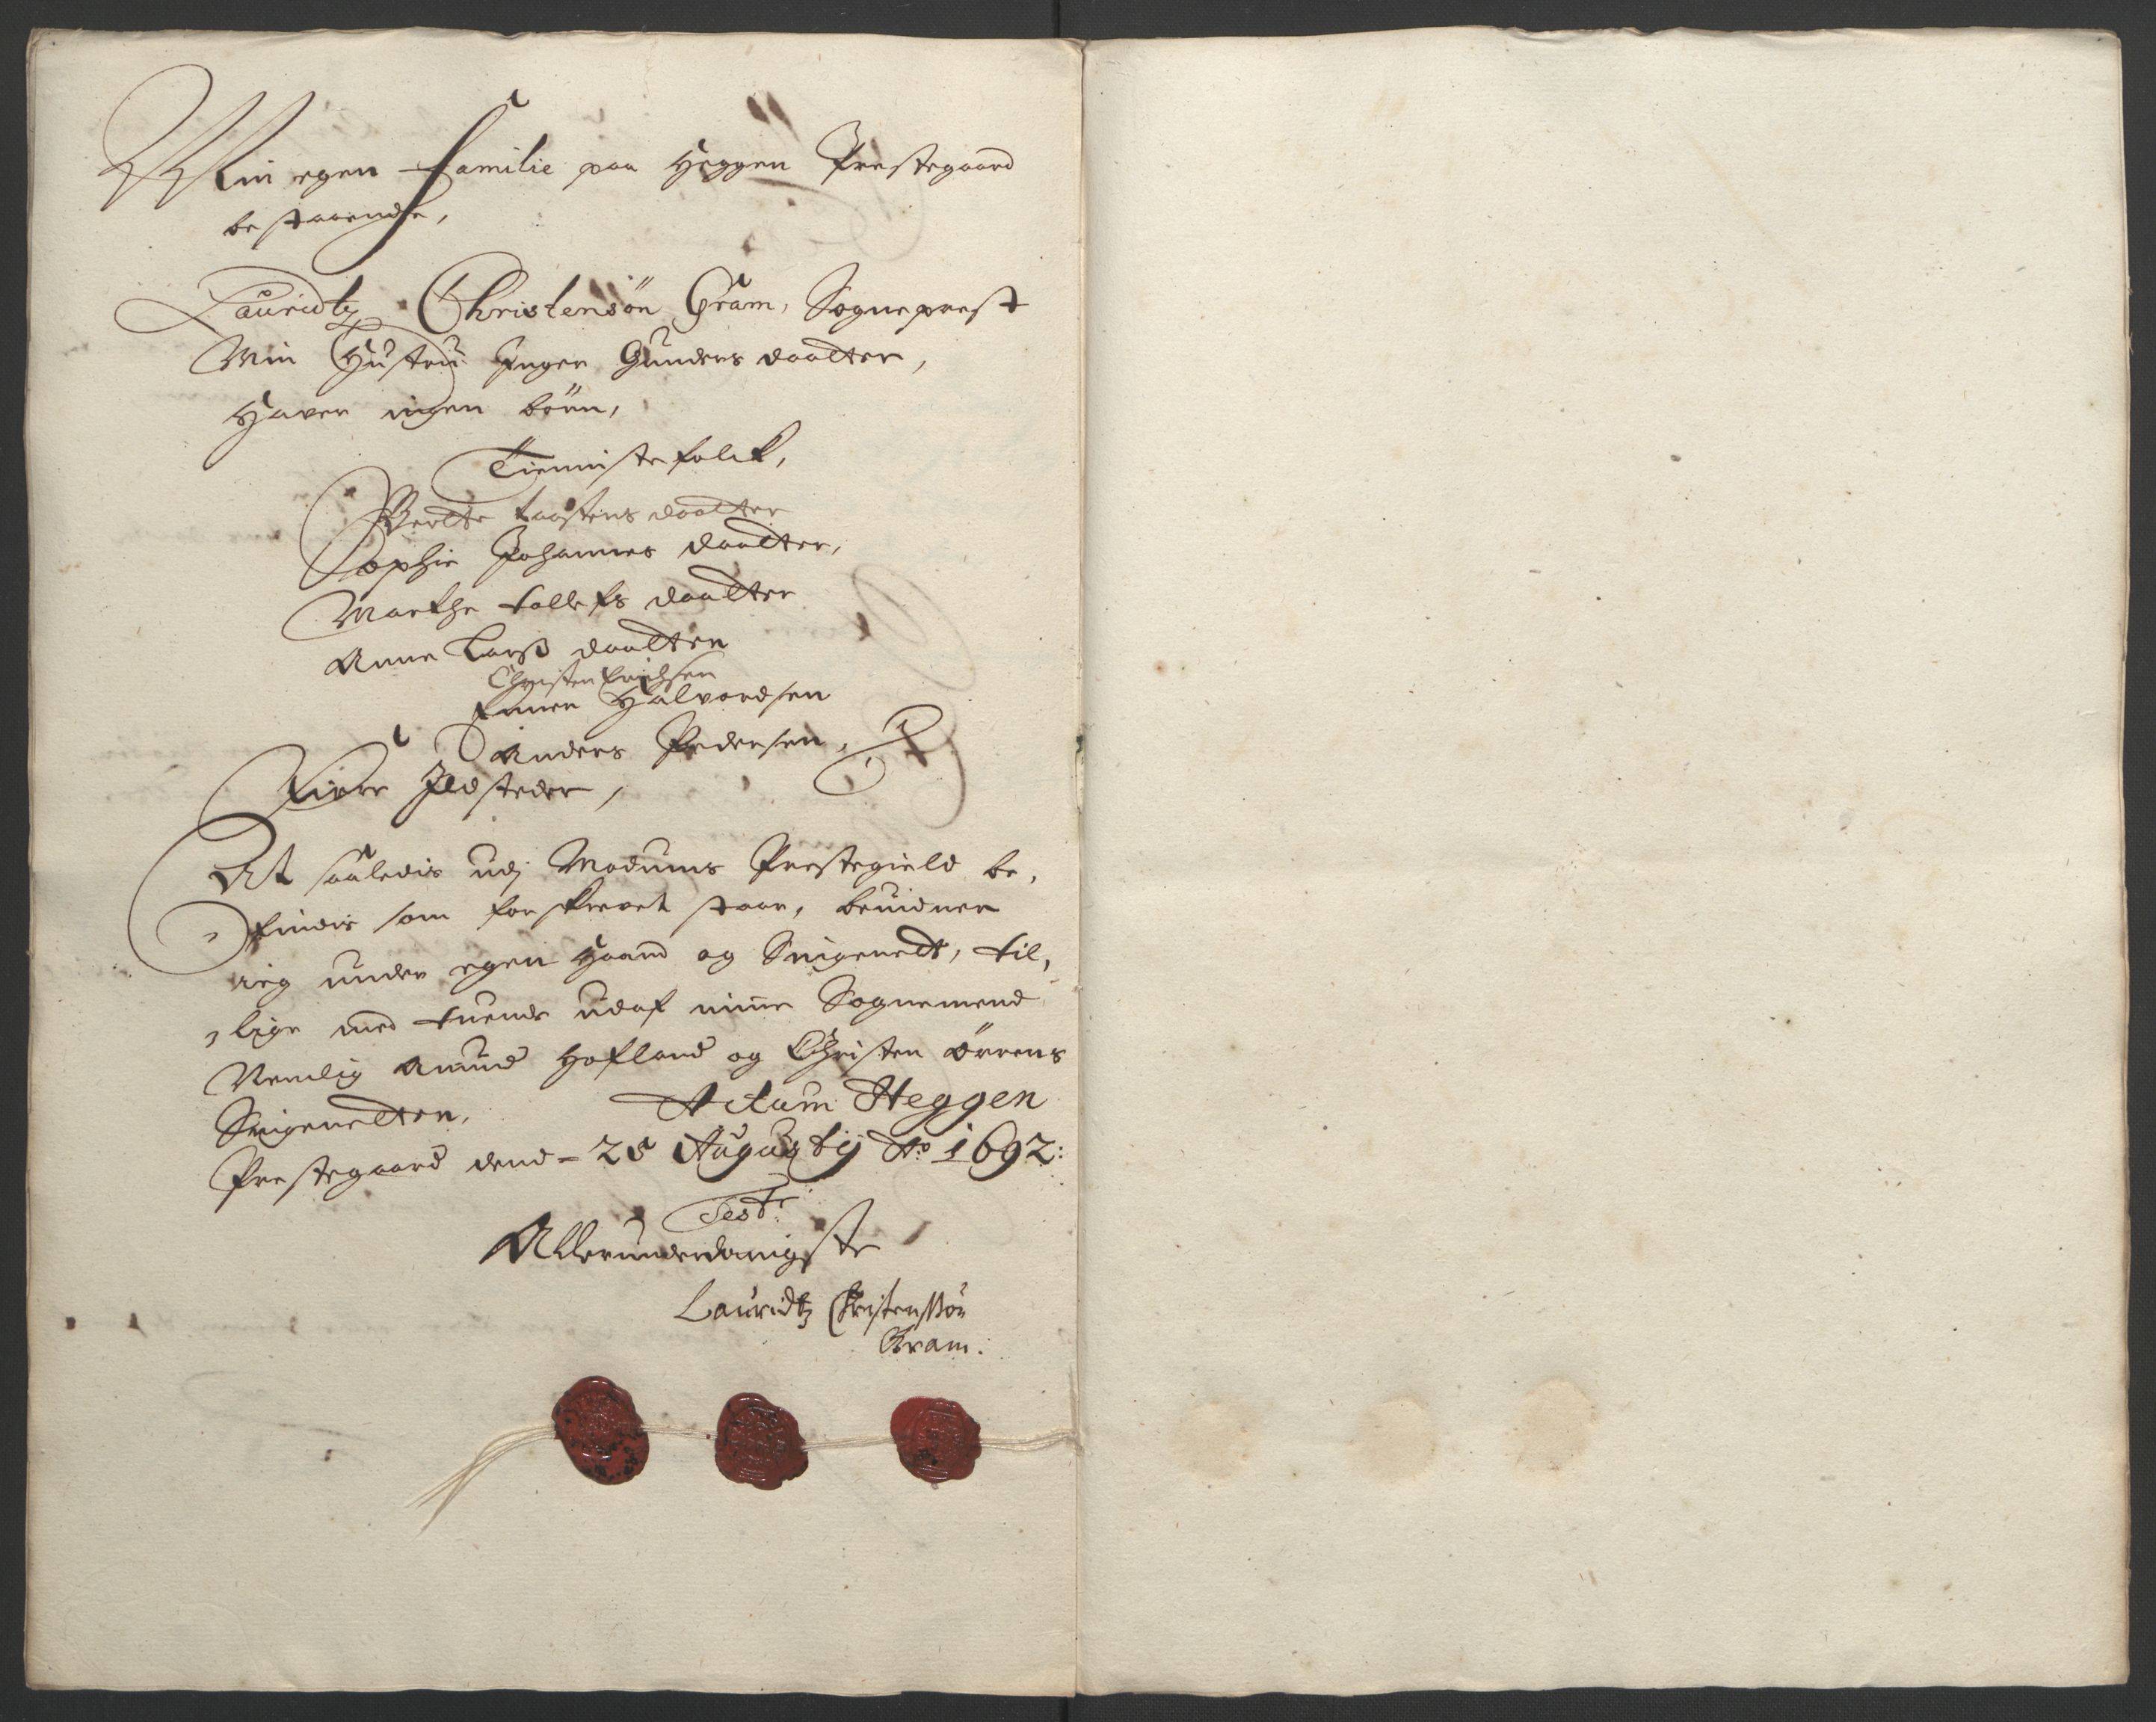 Min egen Familie paa Heggen Prestegaard
bestaaende,
Lauridtz Christensön Gram, Sogneprest
Min Hustru Inger Gunders daatter,
Hafver ingen börn,
Tienniste folck,
Berthe daatter
Sophie Johannes daatter,
Marthe tollefs daatter
Anne Larss daatter
Christen Erichsen
Halvordsen
Anders Pedersen,
Fiere Ildsteder,
At saaledis udj Modums Prestegield be,
findis som forskrevet staar, bevidner
ieg under egen Haand og Signedt, til,
lige med tvende udaf mine Sognemend
Nemlig Amund Hofland og Christen Örrens
Signedter,
Actum Heggen
Prestegaard dend 25 Augustij Ao 1692:
Test:
Allerunderdanigste
Lauridtz Christenssön
Gram.